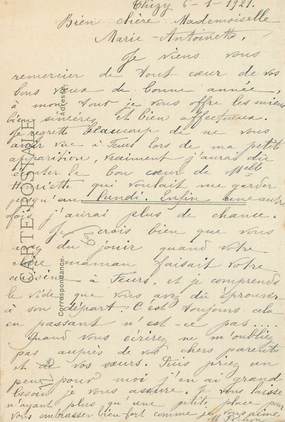 Chizy 6-1-1921.
Bien chère Mademoiselle
Marie-Antoinette,
Je viens vous
remercier de tout cœur de vos
bons vœux de bonne année,
à mon tour je vous offre les miens
bien sincères et bien affectueux.
Je regrette beaucoup de ne vous
avoir vue à Feurs lors de ma petite
apparition, vraiment j'aurais dû
le bon cœur de Melle
Henriette qui voulait me garder
jusqu'au Lundi. Enfin une autre
fois j'aurai plus de chance.
Je crois bien que vous
avez dû jouir quand votre
chère maman faisait votre
à Feurs, et je comprends
le vide que vous avez dû éprouver
à son départ. C'est toujours cela
en passant n'est-ce pas...
Quand vous écrirez ne m'oubliez
pas auprès de vos chers parents
et de vos sœurs. Puis priez un
peu pour moi j'en ai grand
besoin je vous assure. Je vous laisse
n'ayant plus qu'une petite place pour
vous embrasser bien fort comme je vous aime
CARTE POSTALE
Correspondance
Adresse